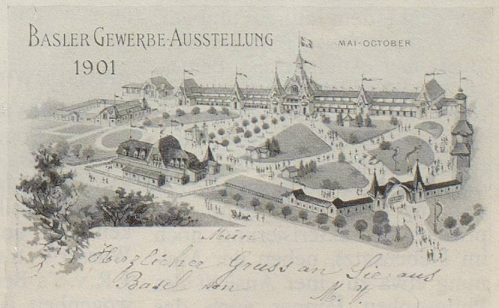 BASLER GEWERBE-AUSSTELLUNG
MAI-OCTOBER
1901
Herzlicher Gruss an Sie aus
Basel von M. V.